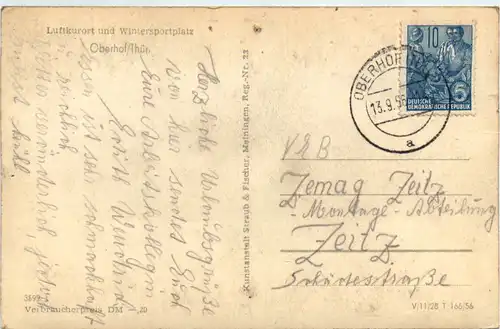 Luftkurort und Wintersportplatz
Oberhof/Thür.
Herzliche Urlaubsgrüße
von hier sendet Euch
Eure Arbeitskollegin
Essen ist sehr schmackhaft
u. reichlich
Wetter veränderlich jedoch
meist kühl
3899
Verbraucherpreis DM ,20
Kunstanstalt Straub & Fischer, Meiningen, Reg.-Nr. 23
10
DEUTSCHE
DEMOKRATISCHE REPUBLIK
OBERHOF
13.9.56
a
VEB
Zemag Zeitz
- Montage-Abteilung
Zeitz
V/11/28 T 166/56